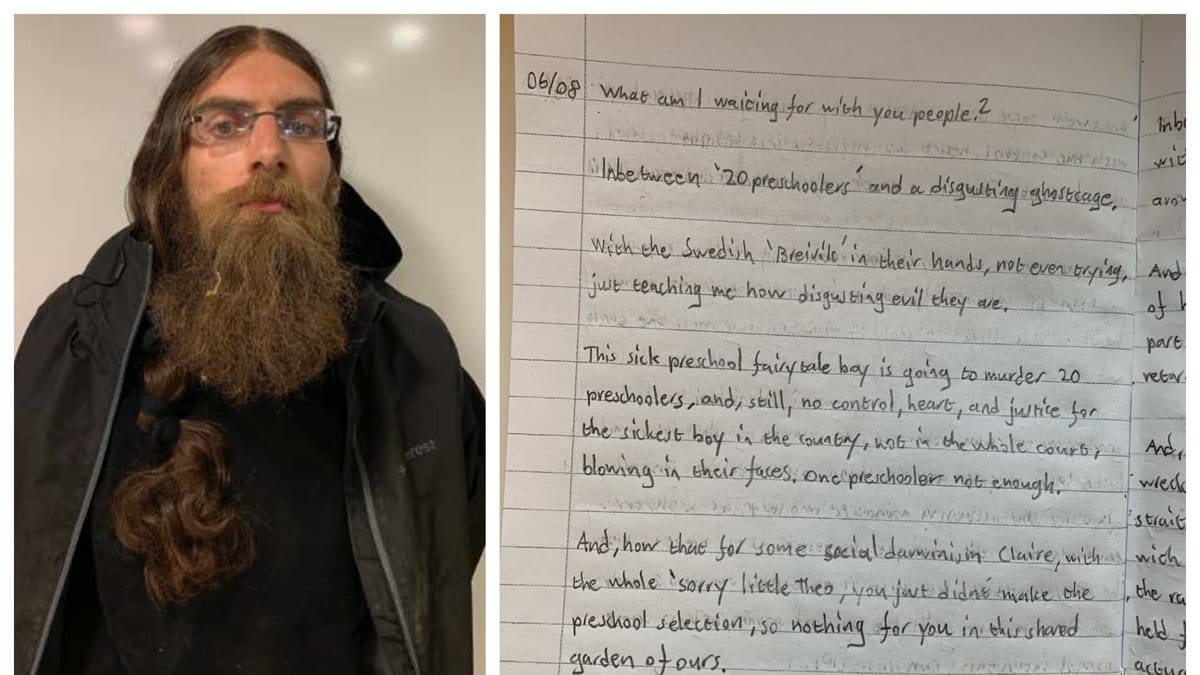 erest
06/08 What am I waiting for with you people.?
Inbetween '20 preschoolers' and a disgusting ghostcage,
With the Swedish 'Breivik' in their hands, not even trying,
just teaching me how disgusting evil they are.
This sick preschool fairytale boy is going to murder 20
preschoolers, and, still, no control, heart, and justice for
the sickest boy in the country, not in the whole court,
blowing in their faces, one preschooler not enough.
And, how that for some social darwinism Claire, with
the whole 'sorry little Theo, you just didn't make the
preschool selection, so nothing for you in this shared
garden of ours.
inb
wit
And
of h
part
retar
And,
wreck
strait
wich
the ra
held f